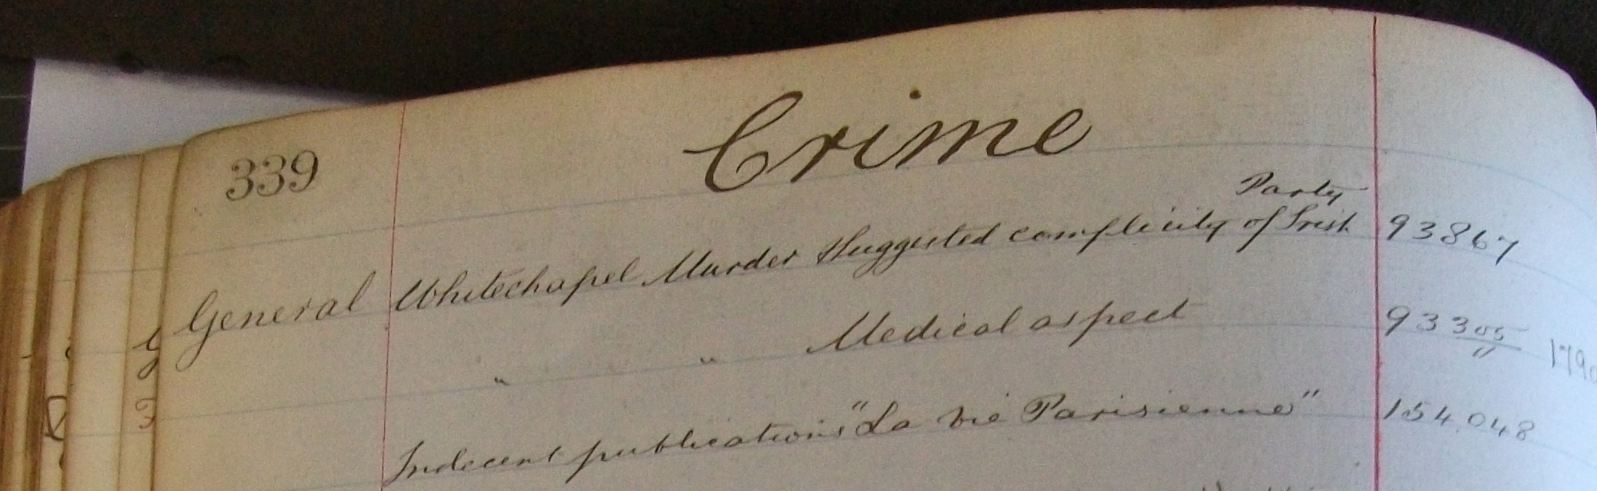 339
Crime
Party
General Whitechapel Murder Suggested complicity of Irish 93867
" " Medical aspect 93305
11 179
Indecent publications "La Vie Parisienne" 154,048